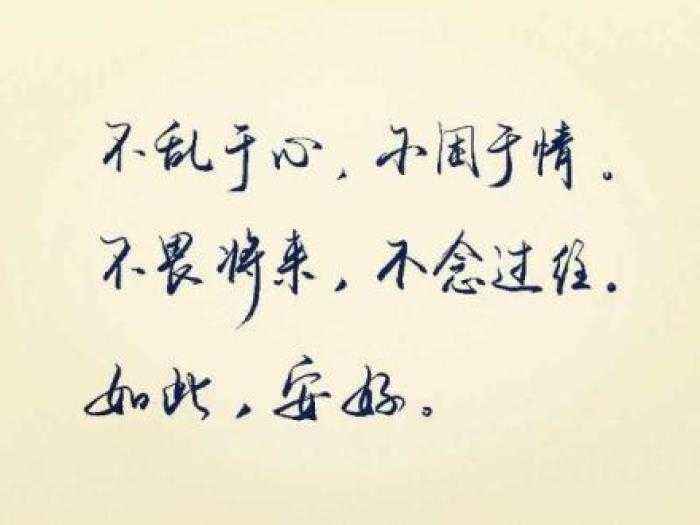 不乱于心，不困于情。
不畏将来，不念过往。
如此，安好。